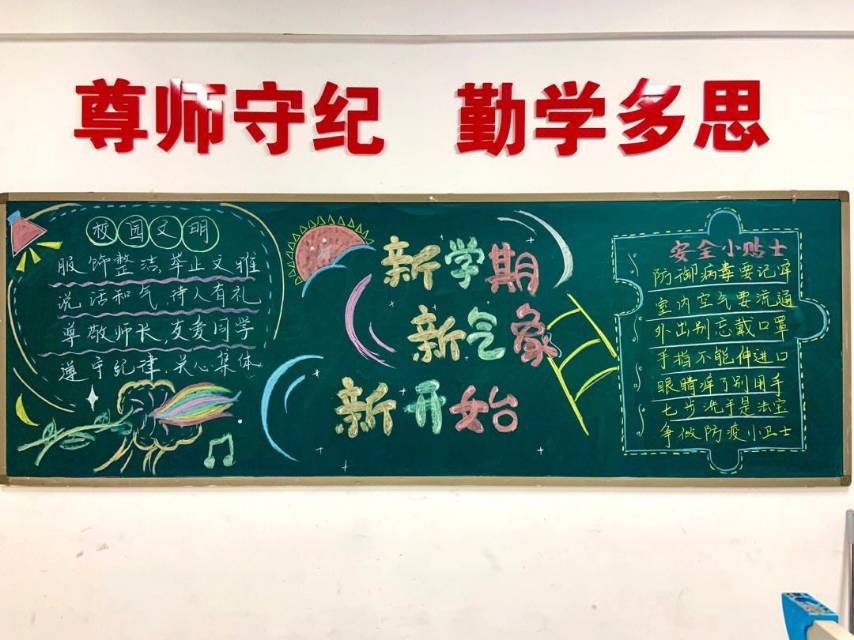 尊师守纪 勤学多思
校园文明
服饰整洁,举止文雅
说话和气,待人有礼
尊敬师长,友爱同学
遵守纪律,关心集体
新学期
新气象
新开始
安全小贴士
防御病毒要记牢
室内空气要流通
外出别忘戴口罩
手指不能伸进口
眼睛痒了别用手
七步洗手是法宝
争做防疫小卫士